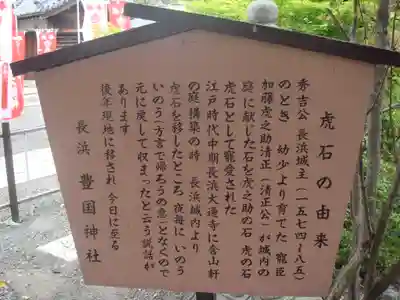 虎石の由来
秀吉公長浜城主(一五七四～八五)
のとき 幼少より育てた 寵臣
加藤虎之助清正(清正公)が城内の
庭に献じた石を虎之助の石 虎の石
虎石として寵愛された
江戸時代中期長浜大通寺に含山軒
の庭構築の時 長浜城内より
虎石を移したところ 夜毎に いのう
いのう(方言で帰ろうの意)となくので
元に戻して収まったと云う説話が
あります
後年現地に移され 今日に至る
長浜 豊国神社